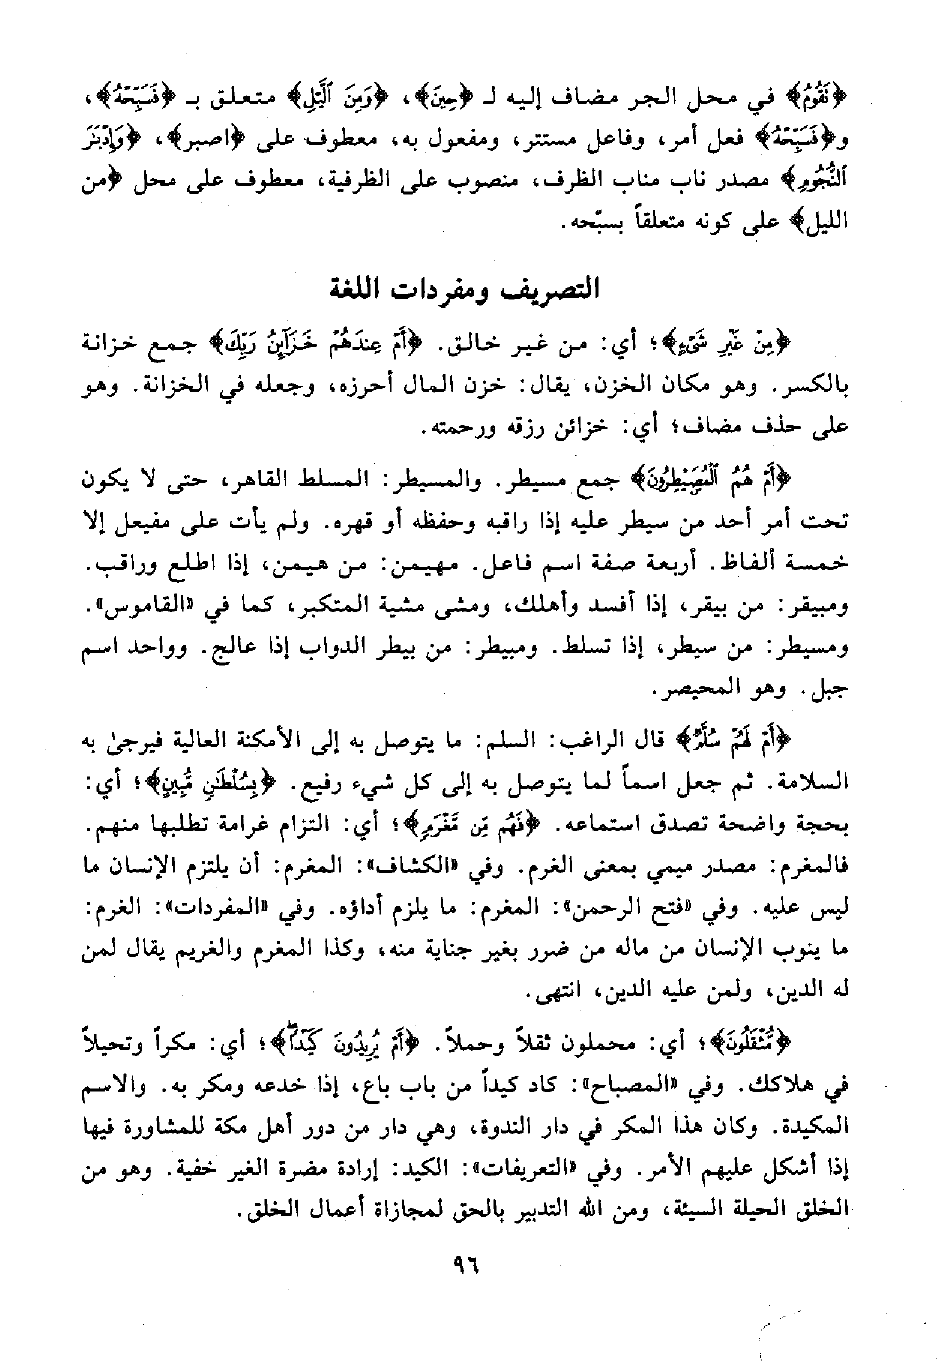 ﴿نَقُومُ﴾ في محل الجر مضاف إليه لـ ﴿حِينَ﴾، ﴿وَمِنَ ٱلَّيْلِ﴾ متعلق بـ ﴿فَسَبِّحْهُ﴾،
و﴿فَسَبِّحْهُ﴾ فعل أمر، وفاعل مستتر، ومفعول به، معطوف على ﴿اصبر﴾، ﴿وَإِدْبَٰرَ
ٱلنُّجُومِ﴾ مصدر ناب مناب الظرف، منصوب على الظرفية، معطوف على محل ﴿من
الليل﴾ على كونه متعلقاً بسبّحه.
التصريف ومفردات اللغة
﴿مِنْ غَيْرِ شَىْءٍ﴾؛ أي: من غير خالق. ﴿أَمْ عِندَهُمْ خَزَآئِنُ رَبِّكَ﴾ جمع خزانة
بالكسر. وهو مكان الخزن، يقال: خزن المال أحرزه، وجعله في الخزانة. وهو
على حذف مضاف؛ أي: خزائن رزقه ورحمته.
﴿أَمْ هُمُ ٱلْمُصَۣيْطِرُونَ﴾ جمع مسيطر. والمسيطر: المسلط القاهر، حتى لا يكون
تحت أمر أحد من سيطر عليه إذا راقبه وحفظه أو قهره. ولم يأت على مفيعل إلا
خمسة ألفاظ. أربعة صفة اسم فاعل. مهيمن: من هيمن، إذا اطلع وراقب.
ومبيقر: من بيقر، إذا أفسد وأهلك، ومشى مشية المتكبر، كما في «القاموس».
ومسيطر: من سيطر، إذا تسلط. ومبيطر: من بيطر الدواب إذا عالج. وواحد اسم
جبل. وهو المحيصر.
﴿أَمْ لَهُمْ سُلَّمٌ﴾ قال الراغب: السلم: ما يتوصل به إلى الأمكنة العالية فيرجىٰ به
السلامة. ثم جعل اسماً لما يتوصل به إلى كل شيء رفيع. ﴿بِسُلْطَٰنٍ مُّبِينٍ﴾؛ أي:
بحجة واضحة تصدق استماعه. ﴿فَهُم مِّن مَّغْرَمٍ﴾؛ أي: التزام غرامة تطلبها منهم.
فالمغرم: مصدر ميمي بمعنى الغرم. وفي «الكشاف»: المغرم: أن يلتزم الإنسان ما
ليس عليه. وفي «فتح الرحمن»: المغرم: ما يلزم أداؤه. وفي «المفردات»: الغرم:
ما ينوب الإنسان من ماله من ضرر بغير جناية منه، وكذا المغرم والغريم يقال لمن
له الدين، ولمن عليه الدين، انتهى.
﴿مُّثْقَلُونَ﴾؛ أي: محملون ثقلاً وحملاً. ﴿أَمْ يُرِيدُونَ كَيْدًا﴾؛ أي: مكراً وتحيلاً
في هلاكك. وفي «المصباح»: كاد كيداً من باب باع، إذا خدعه ومكر به. والاسم
المكيدة. وكان هذا المكر في دار الندوة، وهي دار من دور أهل مكة للمشاورة فيها
إذا أشكل عليهم الأمر. وفي «التعريفات»: الكيد: إرادة مضرة الغير خفية. وهو من
الخلق الحيلة السيئة، ومن الله التدبير بالحق لمجازاة أعمال الخلق.
٩٦